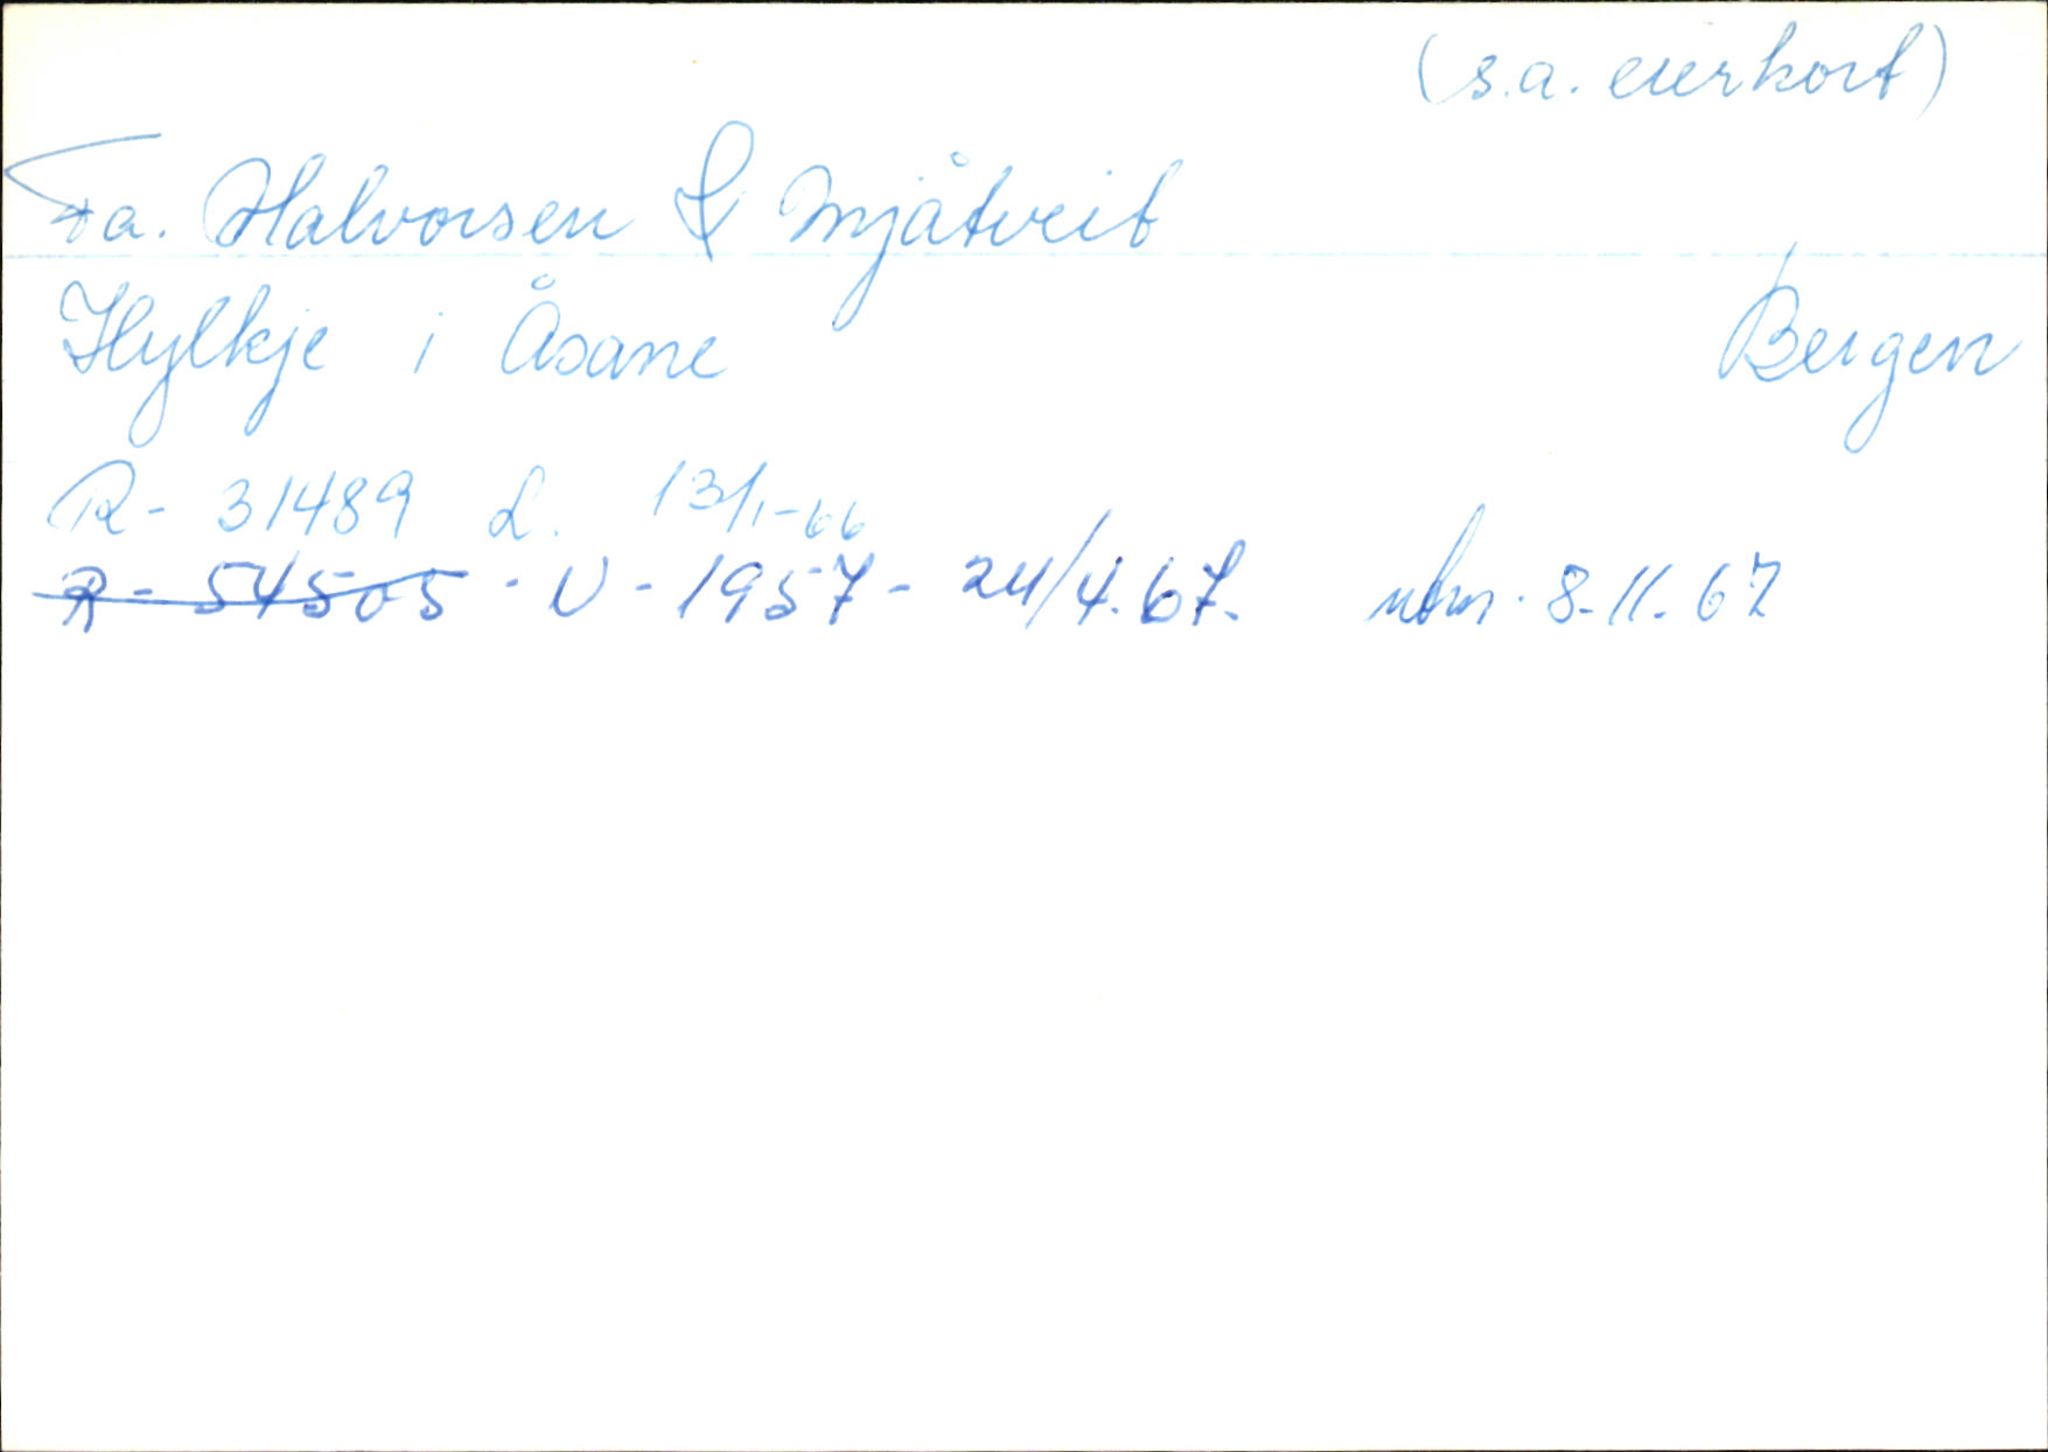 (s.a. eierkort)
Fa. Halvorsen & Mjåtveit
Hylkje i Åsane Bergen
R- 31489 L. 13/1-66
R- 54505 - V - 1957 - 24/4.67. 8-11.67